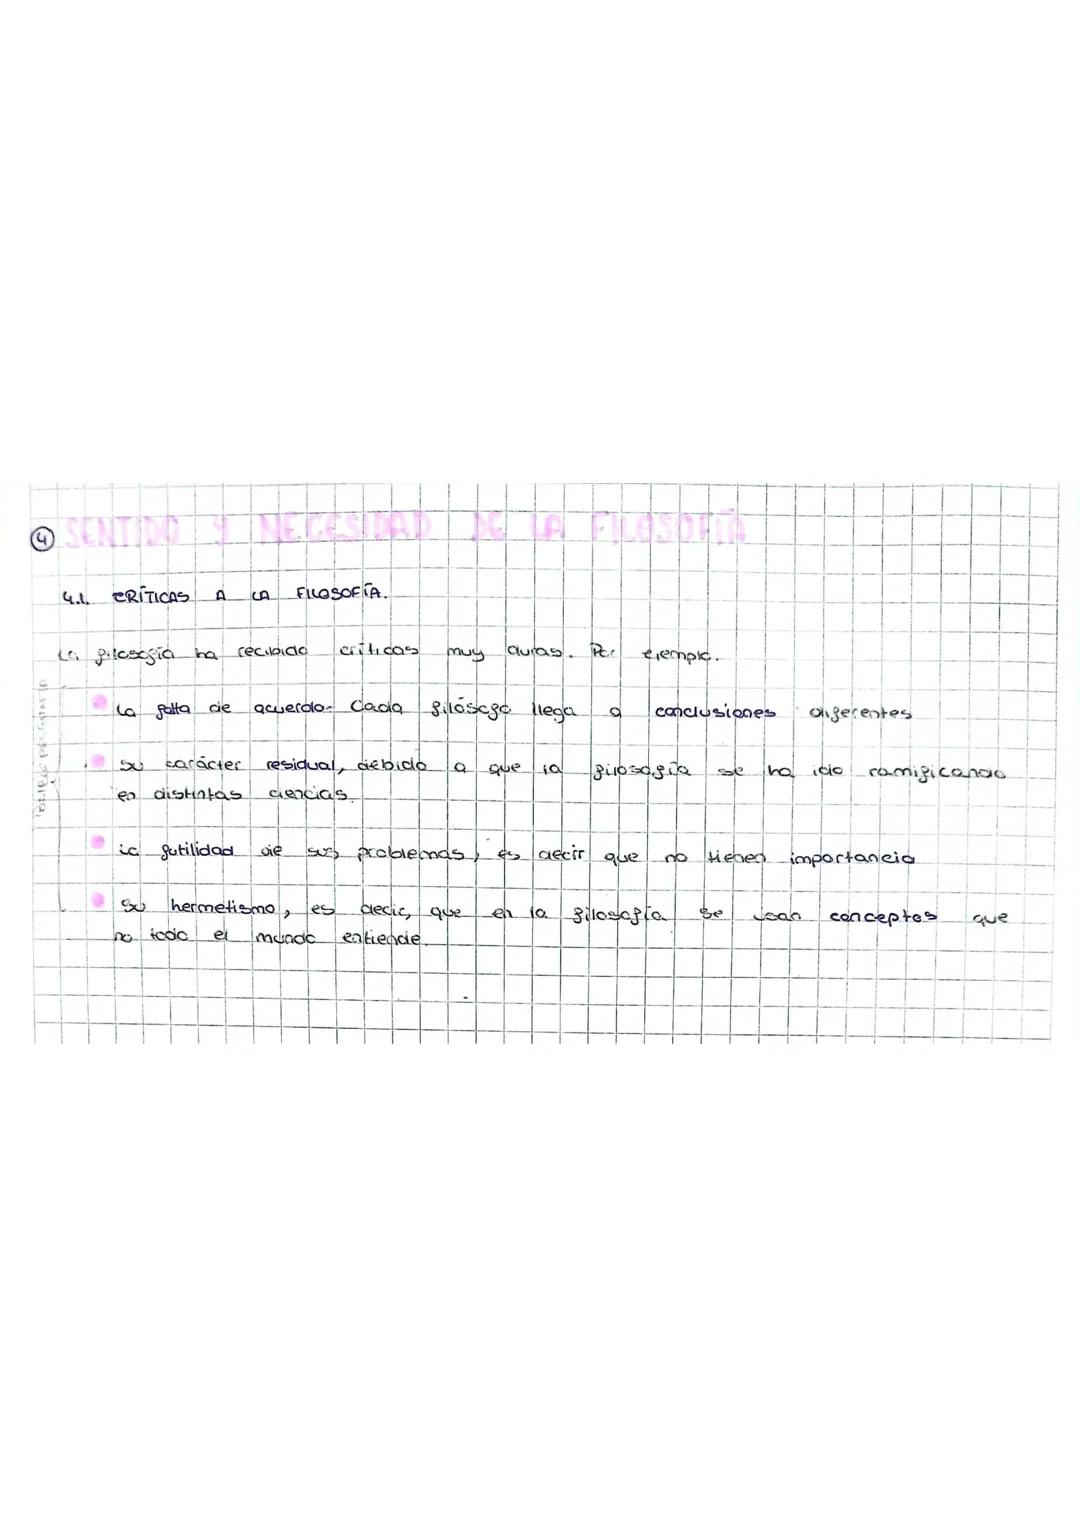 ④ SENTIDO Y NECESIDAD DE LA FILOSOFÍA
4.1. CRÍTICAS A LA FILOSOFÍA.
La filosofía ha recibido críticas muy duras. Por ejemplo.
La falta de acuerdo. Cada filósofo llega a conclusiones diferentes
Su carácter residual, debido a que la filosofía se ha ido ramificando
en distintas ciencias.
La futilidad de sus problemas, es decir que no tienen importancia
Su hermetismo, es decir, que en la filosofía se usan conceptos que
no todo el mundo entiende.